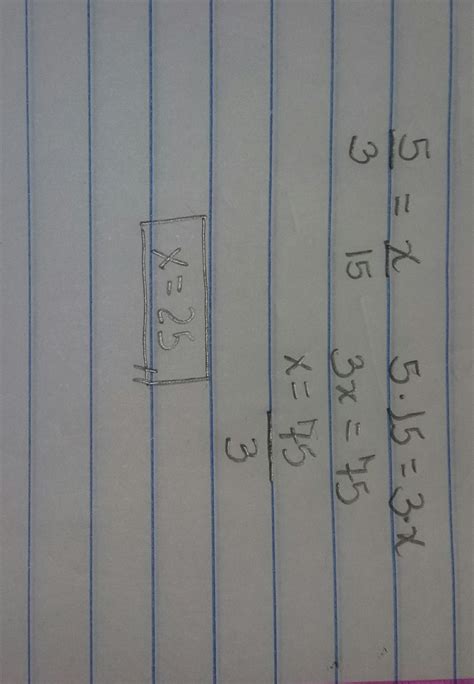 5/3 = x/15   5·15 = 3·x
3x = 75
x = 75/3
x = 25